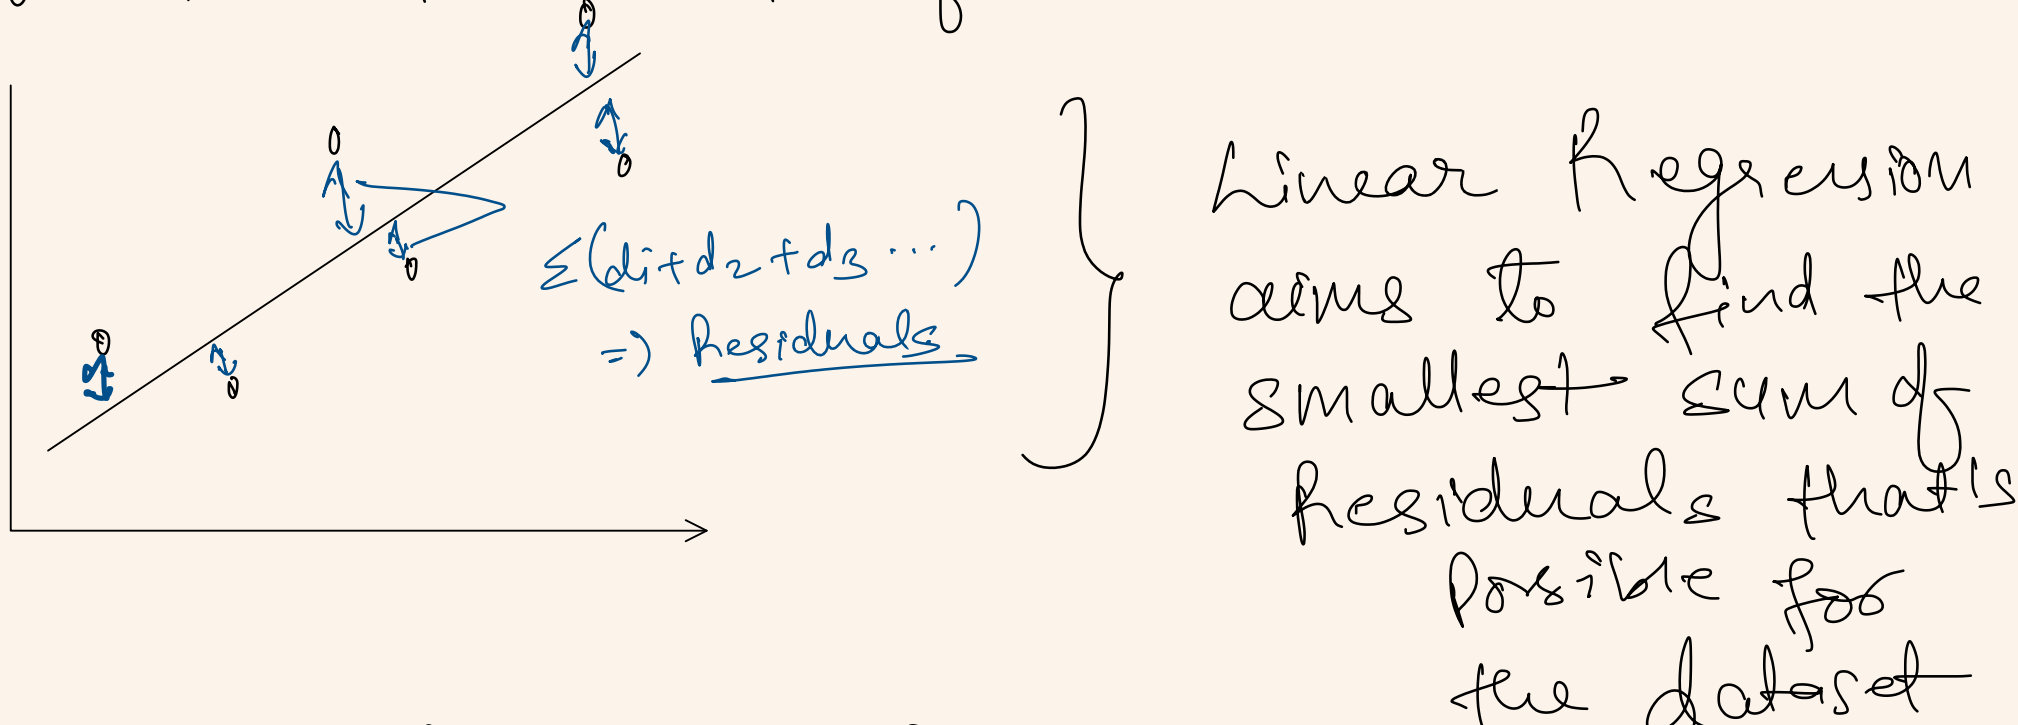 Σ(di+d2+d3 ...)
=) Residuals
Linear Regression
aims to find the
smallest sum of
Residuals that's
Possible for
the dataset